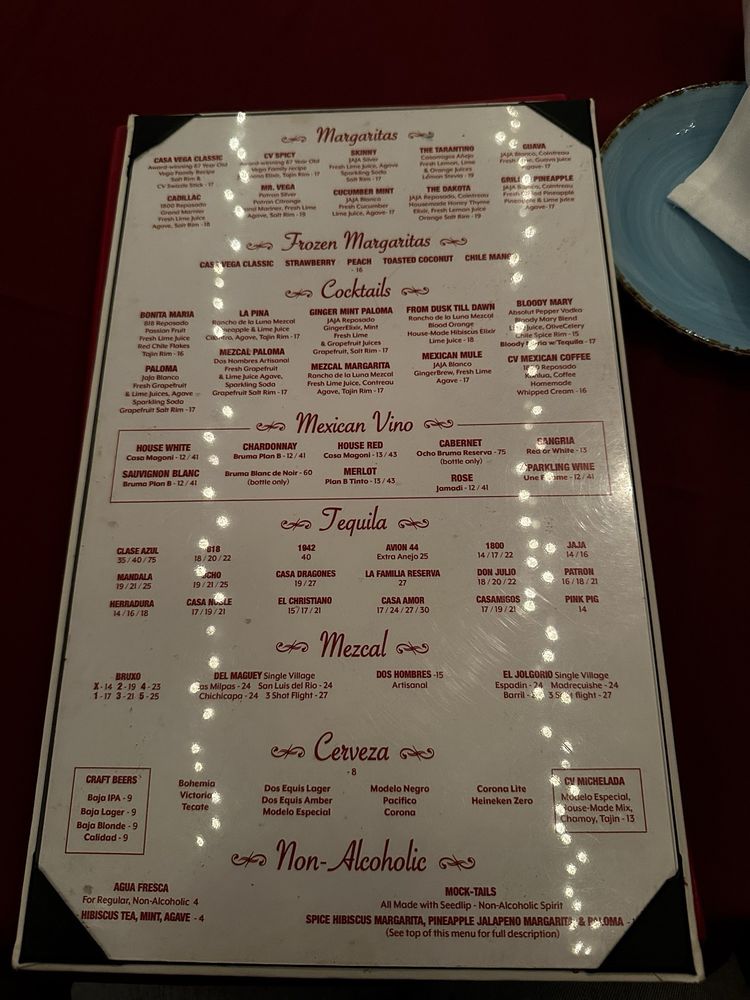 Margaritas
CASA VEGA CLASSIC
Award-winning 67 Year Old
Vega Family Recipe
Salt Rim &
CV Swizzle Stick - 17
CADILLAC
1800 Reposado
Grand Marnier
Fresh Lime Juice
Agave, Salt Rim - 18
CV SPICY
Award-winning 67 Year Old
Vega Family Recipe
Elixir, Tajin Rim - 17
MR. VEGA
Patron Silver
Patron Citronge
Grand Marnier, Fresh Lime
Agave, Salt Rim - 19
SKINNY
JAJA Silver
Fresh Lime Juice, Agave
Sparkling Soda
Salt Rim - 17
CUCUMBER MINT
JAJA Blanco
Fresh Cucumber
Lime Juice, Agave - 17
THE TARANTINO
Casamigos Añejo
Fresh Lemon, Lime
& Orange Juices
Lemon Stevia - 19
THE DAKOTA
JAJA Reposado, Cointreau
Housemade Honey Thyme
Elixir, Fresh Lemon Juice
Orange Salt Rim - 19
GUAVA
JAJA Blanco, Cointreau
Fresh Lime, Guava Juice
Agave - 17
GRILLED PINEAPPLE
JAJA Blanco, Cointreau
Fresh Grilled Pineapple
Pineapple & Lime Juice
Agave - 17
Frozen Margaritas
CASA VEGA CLASSIC STRAWBERRY PEACH TOASTED COCONUT CHILE MANGO
- 16
Cocktails
BONITA MARIA
818 Reposado
Passion Fruit
Fresh Lime Juice
Red Chile Flakes
Tajin Rim - 16
PALOMA
Jaja Blanco
Fresh Grapefruit
& Lime Juices, Agave
Sparkling Soda
Grapefruit Salt Rim - 17
LA PINA
Rancho de la Luna Mezcal
Pineapple & Lime Juice
Cilantro, Agave, Tajin Rim - 17
MEZCAL PALOMA
Dos Hombres Artisanal
Fresh Grapefruit
& Lime Juice Agave,
Sparkling Soda
Grapefruit Salt Rim - 17
GINGER MINT PALOMA
JAJA Reposado
GingerElixir, Mint
Fresh Lime
& Grapefruit Juices
Grapefruit, Salt Rim - 17
MEZCAL MARGARITA
Rancho de la Luna Mezcal
Fresh Lime Juice, Contreau
Agave, Tajin Rim - 17
FROM DUSK TILL DAWN
Rancho de la Luna Mezcal
Blood Orange
House-Made Hibiscus Elixir
Lime Juice - 18
MEXICAN MULE
JAJA Blanco
GingerBrew, Fresh Lime
Agave - 17
BLOODY MARY
Absolut Pepper Vodka
Bloody Mary Blend
Lime Juice, OliveCelery
Chile Spice Rim - 15
Bloody Maria w/Tequila - 17
CV MEXICAN COFFEE
1800 Reposado
Kahlua, Coffee
Homemade
Whipped Cream - 16
Mexican Vino
HOUSE WHITE
Casa Magoni - 12/41
SAUVIGNON BLANC
Bruma Plan B - 12/41
CHARDONNAY
Bruma Plan B - 12/41
Bruma Blanc de Noir - 60
(bottle only)
HOUSE RED
Casa Magoni - 13/43
MERLOT
Plan B Tinto - 13/43
CABERNET
Ocho Bruma Reserva - 75
(bottle only)
ROSE
Jamadi - 12/41
SANGRIA
Red or White - 13
SPARKLING WINE
Une Femme - 12/41
Tequila
CLASE AZUL
35/40/75
818
18/20/22
1942
40
AVION 44
Extra Anejo 25
1800
14/17/22
JAJA
14/16
MANDALA
19/21/25
OCHO
19/21/25
CASA DRAGONES
19/27
LA FAMILIA RESERVA
27
DON JULIO
18/20/22
PATRON
16/18/21
HERRADURA
14/16/18
CASA NOBLE
17/19/21
EL CHRISTIANO
15/17/21
CASA AMOR
17/24/27/30
CASAMIGOS
17/19/21
PINK PIG
14
Mezcal
BRUXO
X - 14 2 - 19 4 - 23
1 - 17 3 - 21 5 - 25
DEL MAGUEY Single Village
Las Milpas - 24 San Luis del Rio - 24
Chichicapa - 24 3 Shot Flight - 27
DOS HOMBRES -15
Artisanal
EL JOLGORIO Single Village
Espadin - 24 Madrecuishe - 24
Barril - 3 Shot flight - 27
Cerveza
- 8
CRAFT BEERS
Baja IPA - 9
Baja Lager - 9
Baja Blonde - 9
Calidad - 9
Bohemia
Victoria
Tecate
Dos Equis Lager
Dos Equis Amber
Modelo Especial
Modelo Negro
Pacifico
Corona
Corona Lite
Heineken Zero
CV MICHELADA
Modelo Especial,
House-Made Mix,
Chamoy, Tajin - 13
Non-Alcoholic
AGUA FRESCA
For Regular, Non-Alcoholic 4
HIBISCUS TEA, MINT, AGAVE - 4
MOCK-TAILS
All Made with Seedlip - Non-Alcoholic Spirit
SPICE HIBISCUS MARGARITA, PINEAPPLE JALAPENO MARGARITA, & PALOMA -
(See top of this menu for full description)